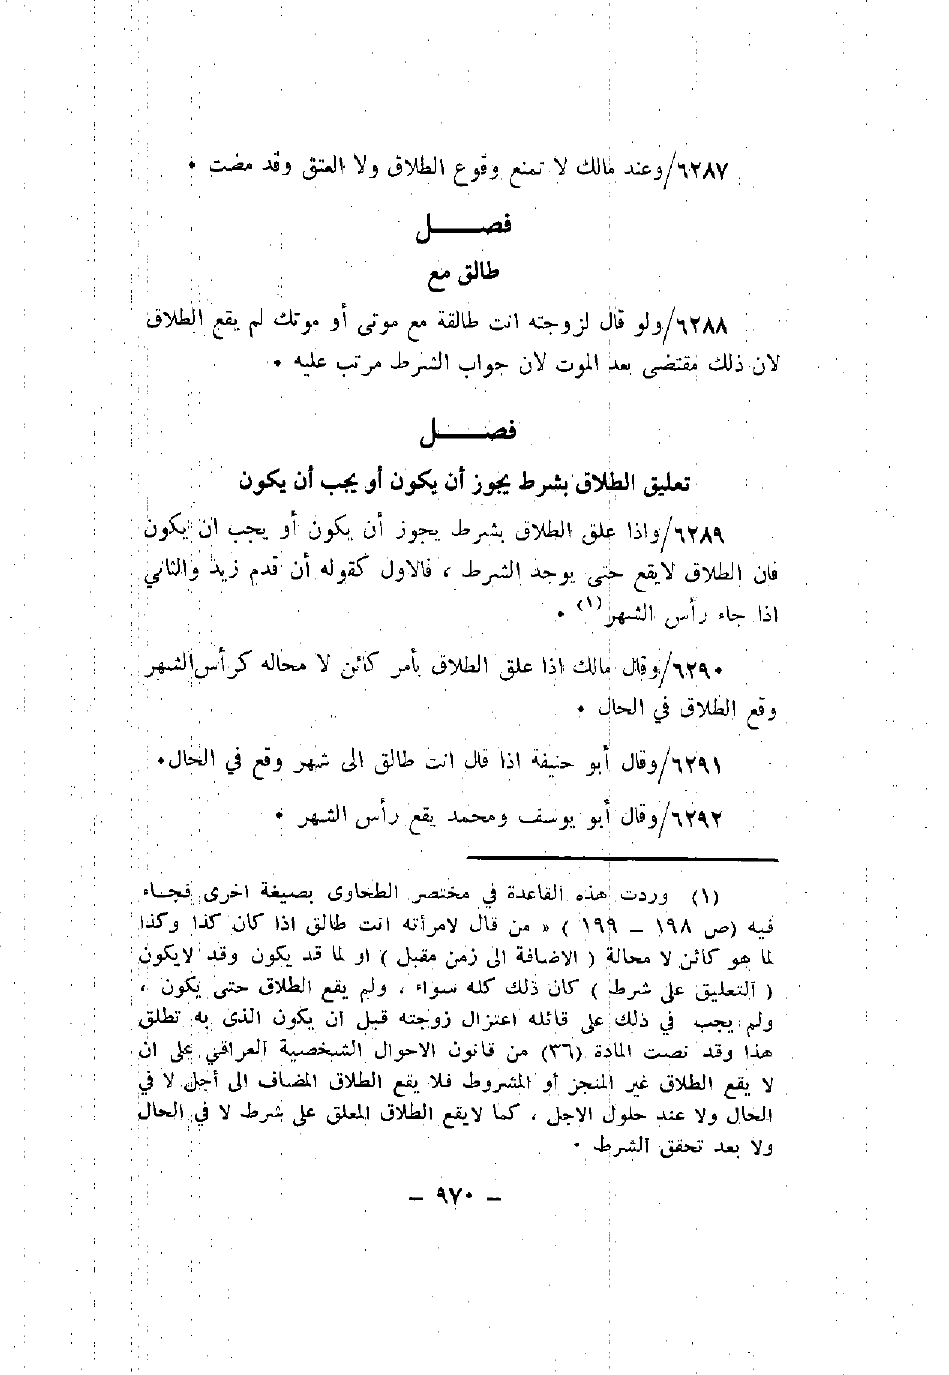 ٦٢٨٧/وعند مالك لا تمنع وقوع الطلاق ولا العتق وقد مضت ٠
فصــــل
طالق مع
٦٢٨٨/ولو قال لزوجته انت طالقة مع موتى أو موتك لم يقع الطلاق
لان ذلك مقتضى بعد الموت لان جواب الشرط مرتب عليه ٠
فصــــل
تعليق الطلاق بشرط يجوز أن يكون أو يجب أن يكون
٦٢٨٩/واذا علق الطلاق بشرط يجوز أن يكون أو يجب ان يكون
فان الطلاق لايقع حتى يوجد الشرط ، فالاول كقوله أن قدم زيد والثاني
اذا جاء رأس الشهر(١) ٠
٦٢٩٠/وقال مالك اذا علق الطلاق بأمر كائن لا محاله كرأس الشهر
وقع الطلاق في الحال ٠
٦٢٩١/وقال أبو حنيفة اذا قال انت طالق الى شهر وقع في الحال٠
٦٢٩٢/وقال أبو يوسف ومحمد يقع رأس الشهر ٠
(١) وردت هذه القاعدة في مختصر الطحاوى بصيغة اخرى فجـاء
فيه (ص ١٩٨ – ١٩٩ ) « من قال لامرأته انت طالق اذا كان كذا وكذا
لما هو كائن لا محالة ( الاضافة الى زمن مقبل ) او لما قد يكون وقد لايكون
( التعليق على شرط ) كان ذلك كله سواء ، ولم يقع الطلاق حتى يكون ،
ولم يجب في ذلك على قائله اعتزال زوجته قبل ان يكون الذى به تطلق
هذا وقد نصت المادة (٣٦) من قانون الاحوال الشخصية العراقي على ان
لا يقع الطلاق غير المنجز أو المشروط فلا يقع الطلاق المضاف الى أجل لا في
الحال ولا عند حلول الاجل ، كما لايقع الطلاق المعلق على شرط لا في الحال
ولا بعد تحقق الشرط ٠
– ٩٧٠ –